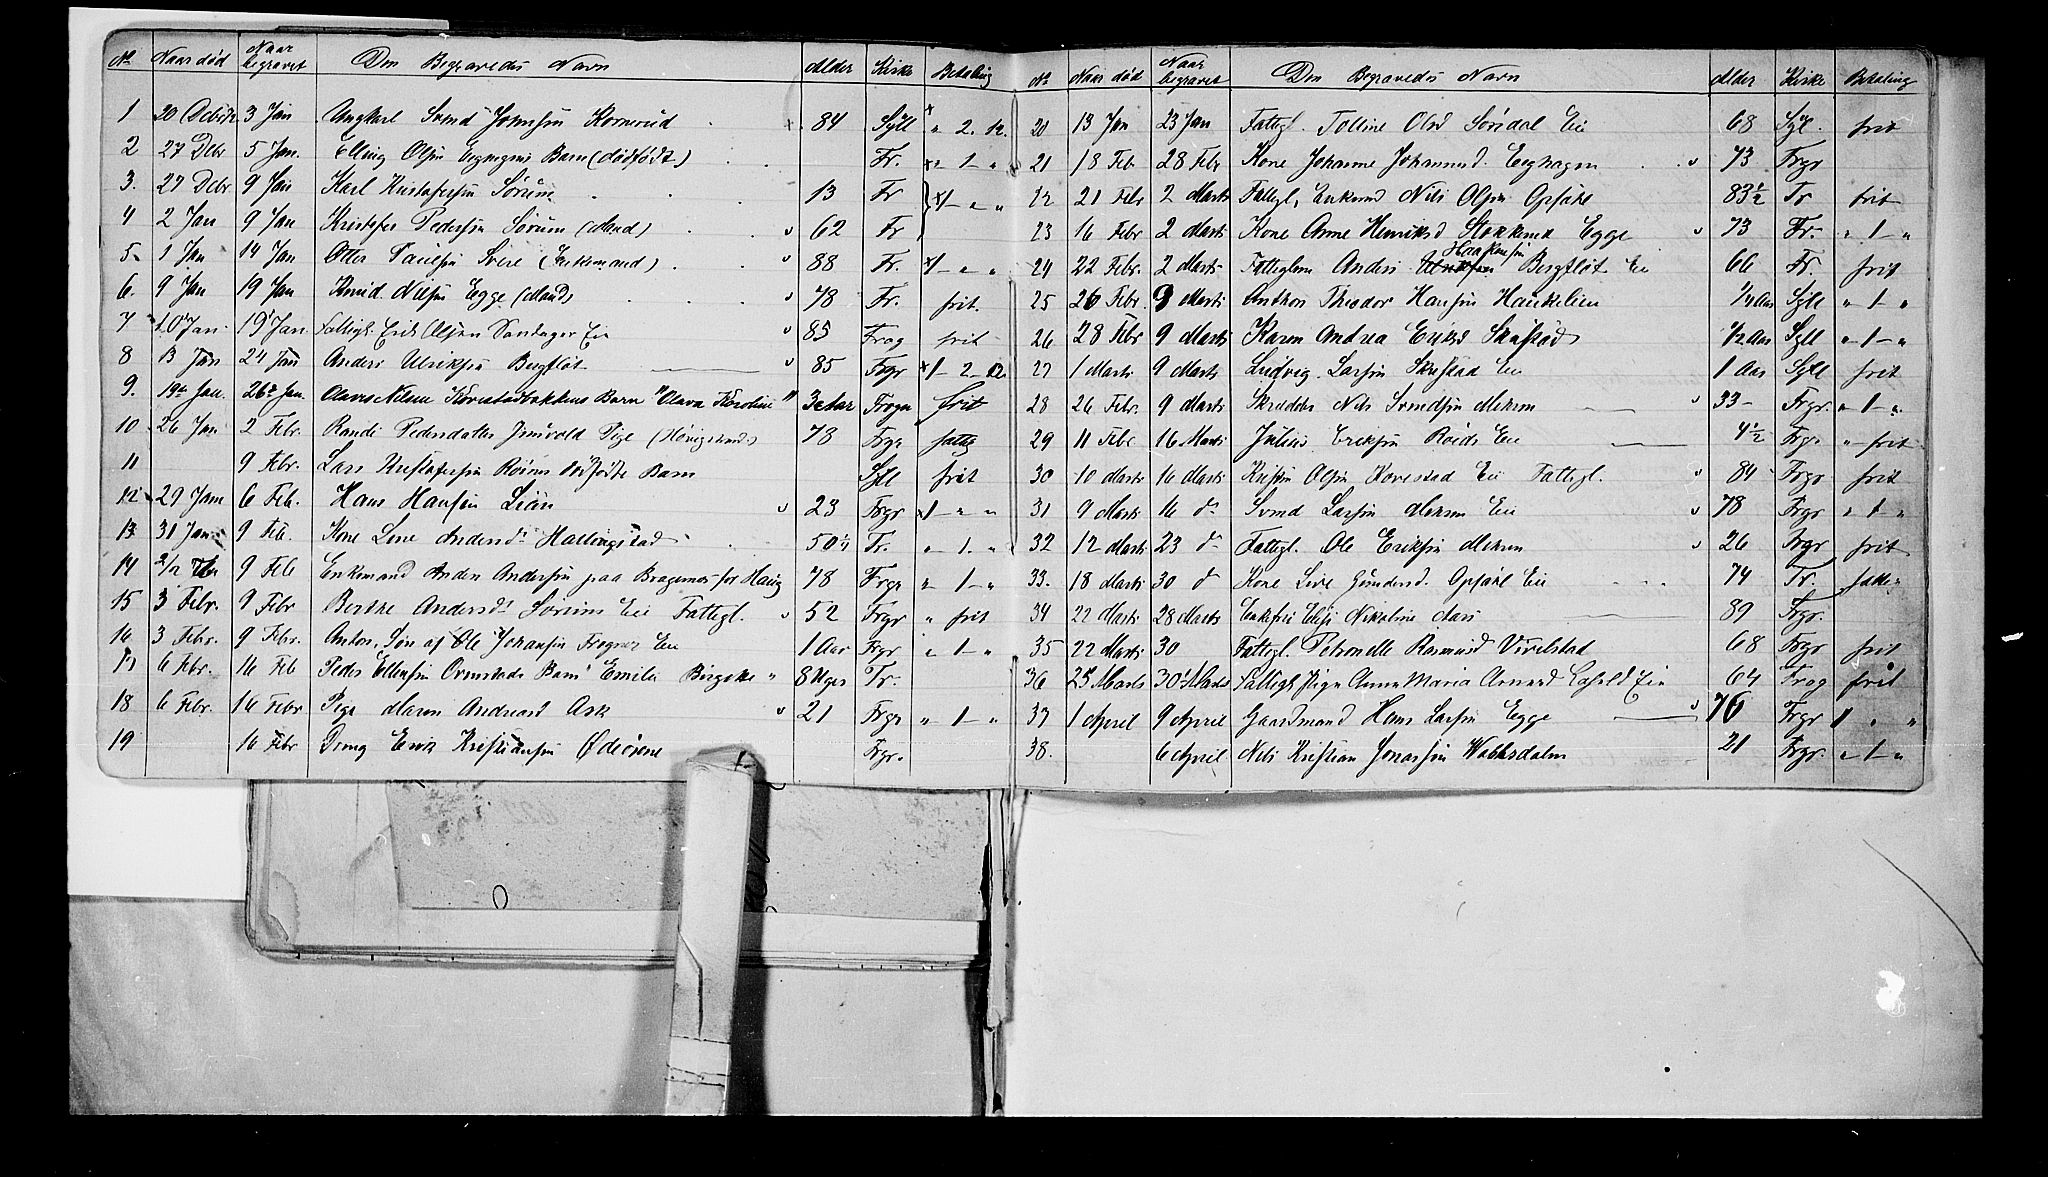 No Naar død Naar begravet Den Begravedes Navn Alder Kirke Betaling
1 20 Decbr 3 Jan Ungkarl Svend Johnsen Kornerud 84 Syll " 2. 12.
2 27 Dbr 5 Jan. Elling Olsen Barn (dødfødt) Fr. x " 1 "
3. 27 Dcbr 9 Jan Karl Kristofersen Sørum 13 Fr x1 - " "
4 2 Jan 9 Jan Kristofer Pedersen Sørum (Mand) 62 Fr
5 1 Jan 14 Jan Otter Paulsen Svere (Enkemand) 88 Fr. x1 - " "
6. 9 Jan 19 Jan Knud Nilsen Egge (Mand) 78 Fr. frit.
7 10 Jan. 19 Jan. Fattigl. Erik Olsen Sandager Eie 85 Frog frit
8 13 Jan 24 Jan Anders Ulriksen Bergflöt 85 Frgr x1 - 2 - 12
9. 19de Jan. 26de Jan. Olaves Nilsen Korestadbakkens Barn "Olava Karoline" 3 Aar Frogn frit
10 26 Jan 2 Febr. Randi Pedersdatter Pige 78 Frgr fattg
11 9 Febr. Lars Kristofersen dödfödte Barn Syll frit
12 29 Jan 6 Feb. Hans Hansen Liån 23 Frgr x1 - " "
13 31 Jan 9 Feb. Kone Line Andersd. Hallingstad 50 1/4 Tr. " 1. "
14 2/2 Feb 9 Feb Enkemand Anders Andersen paa Bragernes for Haug 78 Frgr " 1 - "
15 3 Febr. 9 Febr Berthe Andersd. Sørum Eie Fattigl. 52 Frgr " frit
16 3 Febr. 9 Febr. Anton, Søn af Ole Johansen Frogner Eie 1 Aar Frgr " 1 - "
17 6 Febr. 16 Feb Peder Ellensen Ormstads Barn "Emilie Birgitte" 8 Uger Tr.
18 6 Febr. 16 Febr Pige Maren Andreasd Ask 21 Frgr " 1 - "
19 16 Febr Dreng Erik Kristiansen Frgr.
No Naar død Naar begravet Den Begravedes Navn Alder Kirke Betaling
20 13 Jan 23 Jan Fattigl. Olsd Sörsdal Eie 68 Syl. frit
21 18 Feb 28 Febr Kone Johanne Johannesd. Eeghagen 73 Frgr
22 21 Febr 2 Marts Fattigl. Enkemd Nils Olsen Opsahl 83 1/2 Tr frit
23 16 Febr 2 Marts Kone Anne Henriksd Stokkerud Egge 73 Fr. " 1 - "
24 22 Febr. 2 Marts Fattiglem Anders Ulriksen Haakensen Bergflöt Eie 66 Fr. frit
25 26 Febr. 9 Marts Anthon Theodor Hansen Haukelien 1/4 Aar Syll " 1 - "
26 28 Febr 9 Marts Karen Andrea Eriksd Skrefstad 1/2 Aar Syll " 1 - "
27 1 Marts 9 Marts Ludvig Larsen Skrefstad Eie 1 Aar Syll frit
28 26 Febr. 9 Marts Skrædder Nils Svendsen Meheren 33 - Frgr. " 1 - "
29 11 Febr 16 Marts Julius Eriksen Röids Eie 4 1/2 Frgr " frit
30 10 Marts 16 Marts Kristen Olsen Korestad Eie Fattigl. 84 Frgr frit
31 9 Marts 16 do Svend Larsen Meheren Eie 78 Frgr " 1 - "
32 12 Marts 23 do Fattigl. Ole Eriksen Meheren 26 Frgr frit
33. 18 Marts 30 do Kone Live Gundersd. Opsahl Eie 74 Tr.
34 22 Marts 28 Marts Enkefru Elise Nikoline 89 Frgr.
35 22 Marts 30 Fattigl. Petronelle Rasmusd Vivelstad 68 Frgr frit
36 25 Marts 30 Marts Fattigl. Pige Anna Maria Eie 64 Frog frit
37 1 April 9 April Gaardmand Hans Larsen Egge 76 Frgr 1 " "
38. 6 April Nils Kristian Jonassen 21 Frgr. " 1 - "